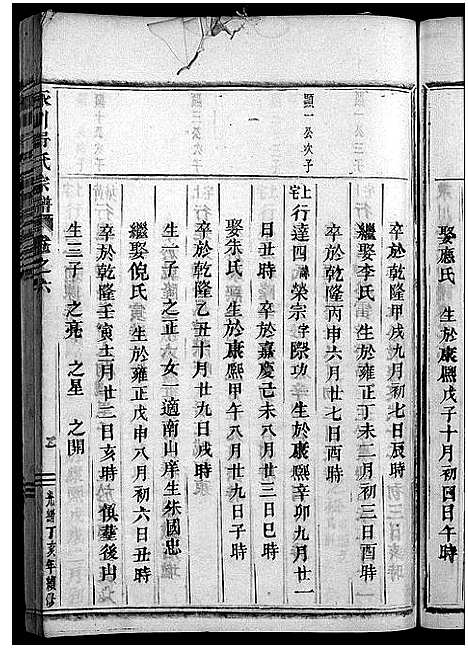 娶應氏 生於康熙戊子十月初四日午時
卒於乾隆甲戌九月初七日辰時
繼娶李氏 生於雍正丁未二月初三日酉時
卒於乾隆丙申六月廿七日酉時
顯一公次子
上宅 行達四 諱榮宗 字際功 生於康熙辛卯九月廿一
日丑時 卒於嘉慶己未八月廿三日巳時
娶朱氏 生於康熙甲午八月廿九日子時
卒於乾隆乙丑十月廿九日戌時
生一子 之正 女一適南山庠生朱國忠
繼娶倪氏 生於雍正戊申八月初六日丑時
卒於乾隆壬寅十二月廿三日亥時
生三子 之亮 之星 之開
氏宗譜 卷之六
光緒丁亥年續修